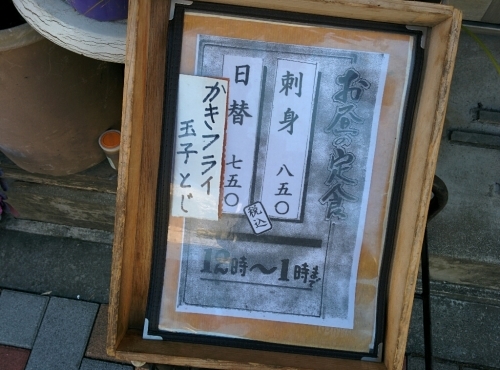 お昼の定食
刺身 八五〇
日替 七五〇
税込
かきフライ
玉子とじ
12時〜1時まで